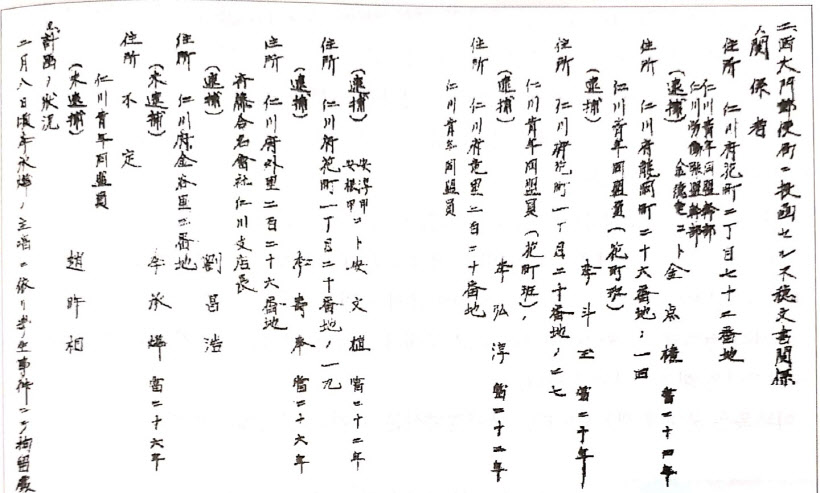 二、西大門郵便局ニ投函セシ不穏文書関係
人関係者
住所 仁川府花町二丁目七十二番地
仁川青年同盟幹部
仁川労働聯盟幹部
(逮捕) コト金点権 當二十四年
住所 仁川府龍岡町二十六番地ノ一四
仁川青年同盟員(花町班)
(逮捕) 李斗玉 當二十年
住所 仁川府花町一丁目二十番地ノ二七
仁川青年同盟員(花町班)
(逮捕) 李弘淳 當二十二年
住所 仁川府 里二百二十番地
仁川青年同盟員
(逮捕) 安淳甲
安根甲コト安文植 當二十二年
住所 仁川府花町一丁目二十番地ノ一九
(逮捕) 李壽奉 當二十六年
住所 仁川府外里二百二十六番地
斉藤合名會社仁川支店長
(逮捕) 劉昌浩
住所 仁川府金谷里 番地
(未逮捕) 李承燁 當二十六年
住所 不定
仁川青年同盟員
(未逮捕) 趙昨相
計画ノ状況
二月八日頃李承燁ノ主唱ニ依リ 事件ニテ拘留